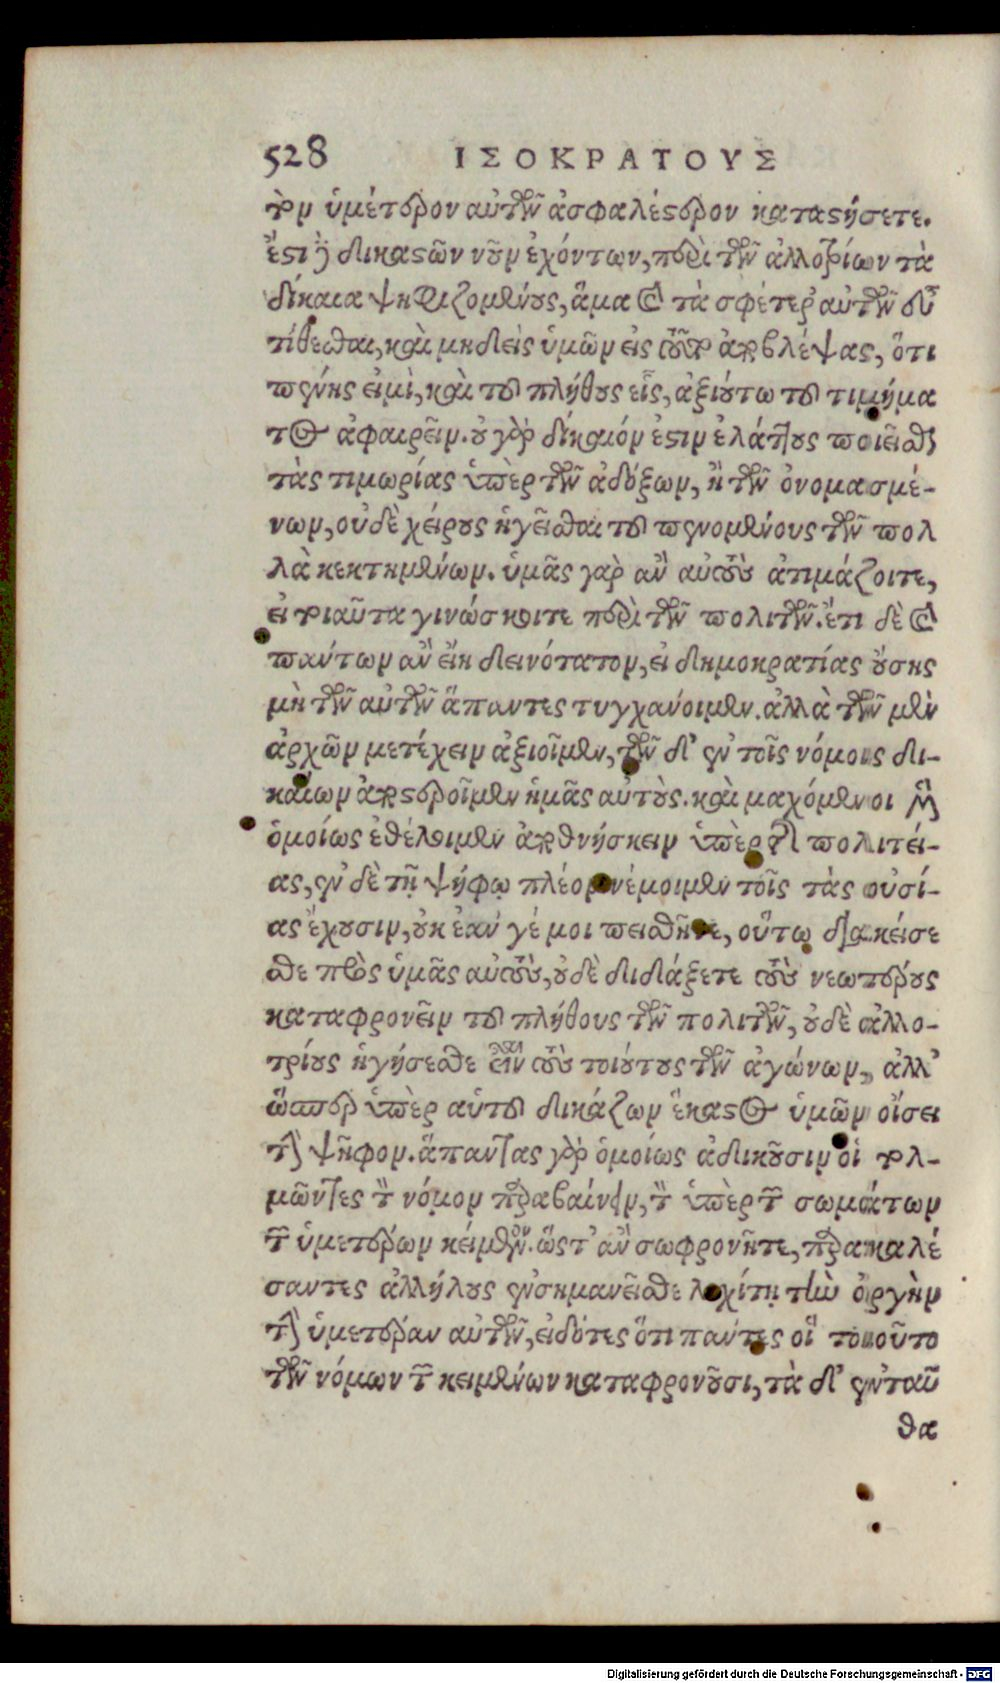 528 ΙΣΟΚΡΑΤΟΥΣ
τὸν ὑμέτερον αὐτῶν ἀσφαλέστερον καταστήσετε.
ἔστι δὲ δικαστῶν νοῦν ἐχόντων, περὶ τῶν ἀλλοτρίων τὰ
δίκαια ψηφιζομένους, ἅμα καὶ τὰ σφέτερ᾽ αὐτῶν εὖ
τίθεσθαι, καὶ μηδεὶς ὑμῶν εἰς τοῦτ᾽ ἀποβλέψας, ὅτι
πένης εἰμὶ, καὶ τοῦ πλήθους εἷς, ἀξιούτω τοῦ τιμήμα
τος ἀφαιρεῖν. οὐ γὰρ δίκαιόν ἐστιν ἐλάττους ποιεῖσθαι
τὰς τιμωρίας ὑπὲρ τῶν ἀδόξων, ἢ τῶν ὀνομασμέ-
νων, οὐδὲ χείρους ἡγεῖσθαι τοὺς πενομένους τῶν πολ
λὰ κεκτημένων. ὑμᾶς γὰρ ἂν αὐτοὺς ἀτιμάζοιτε,
εἰ τοιαῦτα γινώσκοιτε περὶ τῶν πολιτῶν. ἔτι δὲ καὶ
πάντων ἂν εἴη δεινότατον, εἰ δημοκρατίας οὔσης
μὴ τῶν αὐτῶν ἅπαντες τυγχάνοιμεν. ἀλλὰ τῶν μὲν
ἀρχῶν μετέχειν ἀξιοῖμεν, τῶν δ᾽ ἐν τοῖς νόμοις δι-
καίων ἀποστεροῖμεν ἡμᾶς αὐτούς. καὶ μαχόμενοι μὲν
ὁμοίως ἐθέλοιμεν ἀποθνήσκειν ὑπὲρ τῆς πολιτεί-
ας, ἐν δὲ τῇ ψήφῳ πλέον νέμοιμεν τοῖς τὰς οὐσί-
ας ἔχουσιν, οὐκ ἐάν γέ μοι πεισθῆτε, οὕτω διακείσε
σθε πρὸς ὑμᾶς αὐτοὺς, οὐδὲ διδάξετε τοὺς νεωτέρους
καταφρονεῖν τοῦ πλήθους τῶν πολιτῶν, οὐδὲ ἀλλο-
τρίους ἡγήσεσθε εἶναι τοὺς τοιούτους τῶν ἀγώνων, ἀλλ᾽
ὥσπερ ὑπὲρ αὑτοῦ δικάζων ἕκαστος ὑμῶν οἴσει
τὴν ψῆφον. ἅπαντας γὰρ ὁμοίως ἀδικοῦσιν οἱ τολ-
μῶντες τὸν νόμον παραβαίνειν, τὸν ὑπὲρ τῶν σωμάτων
τῶν ὑμετέρων κείμενον. ὥστ᾽ ἂν σωφρονῆτε, παρακαλέ
σαντες ἀλλήλους ἐνσημανεῖσθε λοχίτῃ τὴν ὀργὴν
τὴν ὑμετέραν αὐτῶν, εἰδότες ὅτι πάντες οἱ τοιοῦτο
τῶν νόμων τῶν κειμένων καταφρονοῦσι, τὰ δ᾽ ἐνταῦ
θα
Digitalisierung gefördert durch die Deutsche Forschungsgemeinschaft - DFG